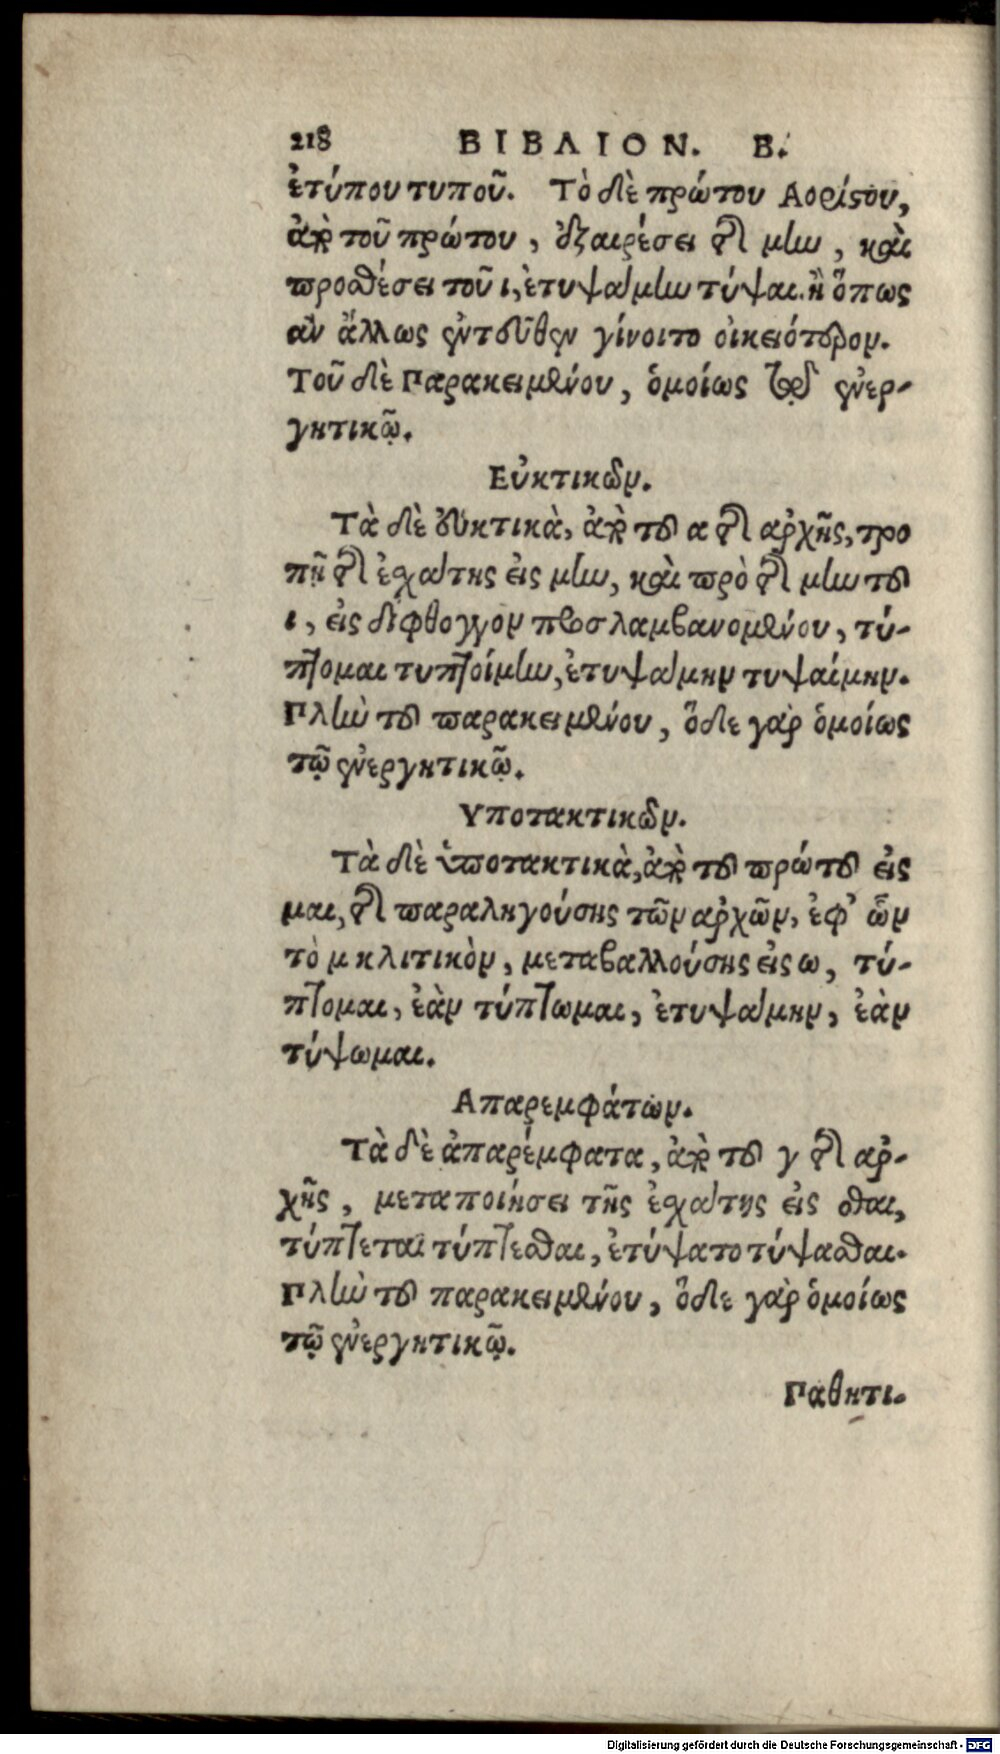 218 ΒΙΒΛΙΟΝ. Β.
ἐτύπου τυποῦ. Τὸ δὲ πρώτου Αορίστου,
ἀπὸ τοῦ πρώτου, ἐξαιρέσει τῆς μην, καὶ
προσθέσει τοῦ ι, ἐτυψάμην τύψαι. ἢ ὅπως
ἂν ἄλλως ἐντεῦθεν γίνοιτο οἰκειότερον.
Τοῦ δὲ Παρακειμένου, ὁμοίως τῷ ἐνερ-
γητικῷ.
Εὐκτικῶν.
Τὰ δὲ εὐκτικὰ, ἀπὸ του α τῆς ἀρχῆς, τρο
πῇ τῆς ἐσχάτης εἰς μην, καὶ πρὸ τῆς μην του
ι, εἰς δίφθογγον προσλαμβανομένου, τύ-
πτομαι τυπτοίμην, ἐτυψάμην τυψαίμην.
Πλὴν του παρακειμένου, ὅδε γὰρ ὁμοίως
τῷ ἐνεργητικῷ.
Υποτακτικῶν.
Τὰ δὲ ὑποτακτικὰ, ἀπὸ του πρώτου εἰς
μαι, τῆς παραληγούσης τῶν ἀρχῶν, ἐφ' ὧν
τὸ μ κλιτικὸν, μεταβαλλούσης εἰς ω, τύ-
πτομαι, ἐὰν τύπτωμαι, ἐτυψάμην, ἐὰν
τύψωμαι.
Απαρεμφάτων.
Τὰ δὲ ἀπαρέμφατα, ἀπὸ του γ τῆς ἀρ-
χῆς, μεταποιήσει τῆς ἐσχάτης εἰς σθαι,
τύπτεται τύπτεσθαι, ἐτύψατο τύψασθαι.
Πλὴν του παρακειμένου, ὅδε γὰρ ὁμοίως
τῷ ἐνεργητικῷ.
Παθητι-
Digitalisierung gefördert durch die Deutsche Forschungsgemeinschaft - DFG